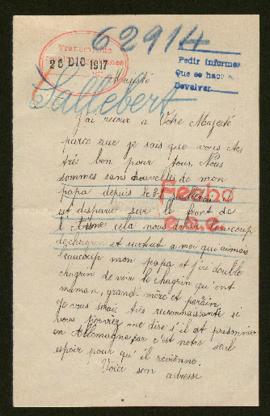 62914
Tramitado
26 DIC 1917
Pedir informes
Que se haga
Devolver
Majesté
Sallebert
J'ai recour à Votre Majesté
parce que je sais que vous êtes
très bon pour tous. Nous
sommes sans nouvelles de mon
papa depuis
Hecho
est disparu sur le front de
l'Aisne cela nous donne beaucoup
de chagrin et surtout à moi qui aimais
beaucoup mon papa et j'ai double
chagrin de voir le chagrin qu'ont
maman, grand mère et parrain
Je vous serais très reconnaissante si
vous pouviez me dire s'il est prisonnier
en Allemagne car c'est notre seul
espoir pour qu'il revienne.
Voici son adresse